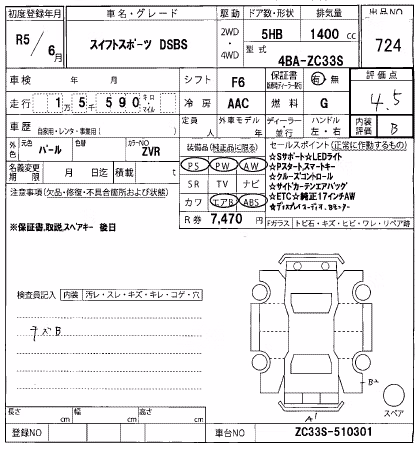 初度登録年月 車名・グレード 駆動 ドア数・形状 排気量 出品NO
R5 6月 スイフトスポーツ DSBS 2WD・4WD 5HB 1400 cc 724
型式 4BA-ZC33S
車検 年 月 シフト F6 保証書 有 無 評価点
走行 1万5千590キロ・マイル 冷房 AAC 燃料 G 4.5
車歴 自家用・レンタ・事業用( ) 定員 人 外車モデル 年 ディーラー・並行 ハンドル 左・右 内装評価 B
外色 パール 色替 カラーNO ZVR
装備品(純正品に限る) セールスポイント(正常に作動するもの)
名義変更期限 月 日迄 積載 t
PS PW AW
SR TV ナビ
カワ エアB ABS
R券 7,470 円
☆Sサポート☆LEDライト
☆Pスタートスマートキー
☆クルーズコントロール
☆サイドカーテンエアバッグ
☆ETC☆純正17インチAW
注意事項(欠品・修復・不具合箇所および状態)
※保証書、取説、スペアキー 後日
Fガラス トビ石・キズ・ヒビ・ワレ・リペア跡
検査員記入 内装 汚レ・スレ・キズ・キレ・コゲ・穴
B2
A1
スペア
長さ cm 幅 cm 高さ cm
登録NO 車台NO ZC33S-510301